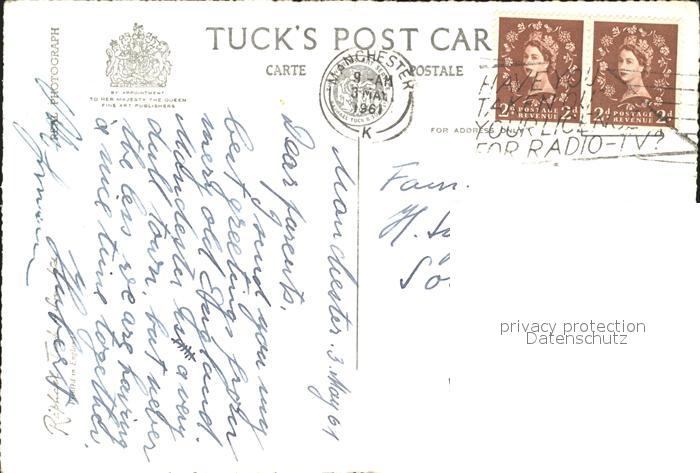 TUCK'S POST CAR
CARTE POSTALE
BY APPOINTMENT
TO HER MAJESTY THE QUEEN
FINE ART PUBLISHERS
PHOTOGRAPH
FOR ADDRESS ONLY
MANCHESTER
9 - AM
3 MAY
1961
K
HAVE YOU
TAKEN OUT
FOR RADIO-TV?
2d POSTAGE REVENUE 2d
2d POSTAGE REVENUE 2d
Manchester. 3. May 61
Dear parents,
I send you my
best greetings from
merry old England
Manchester is a very
dull town, but never
the less we are having
a nice time together.
Fam.
H.
privacy protection
Datenschutz